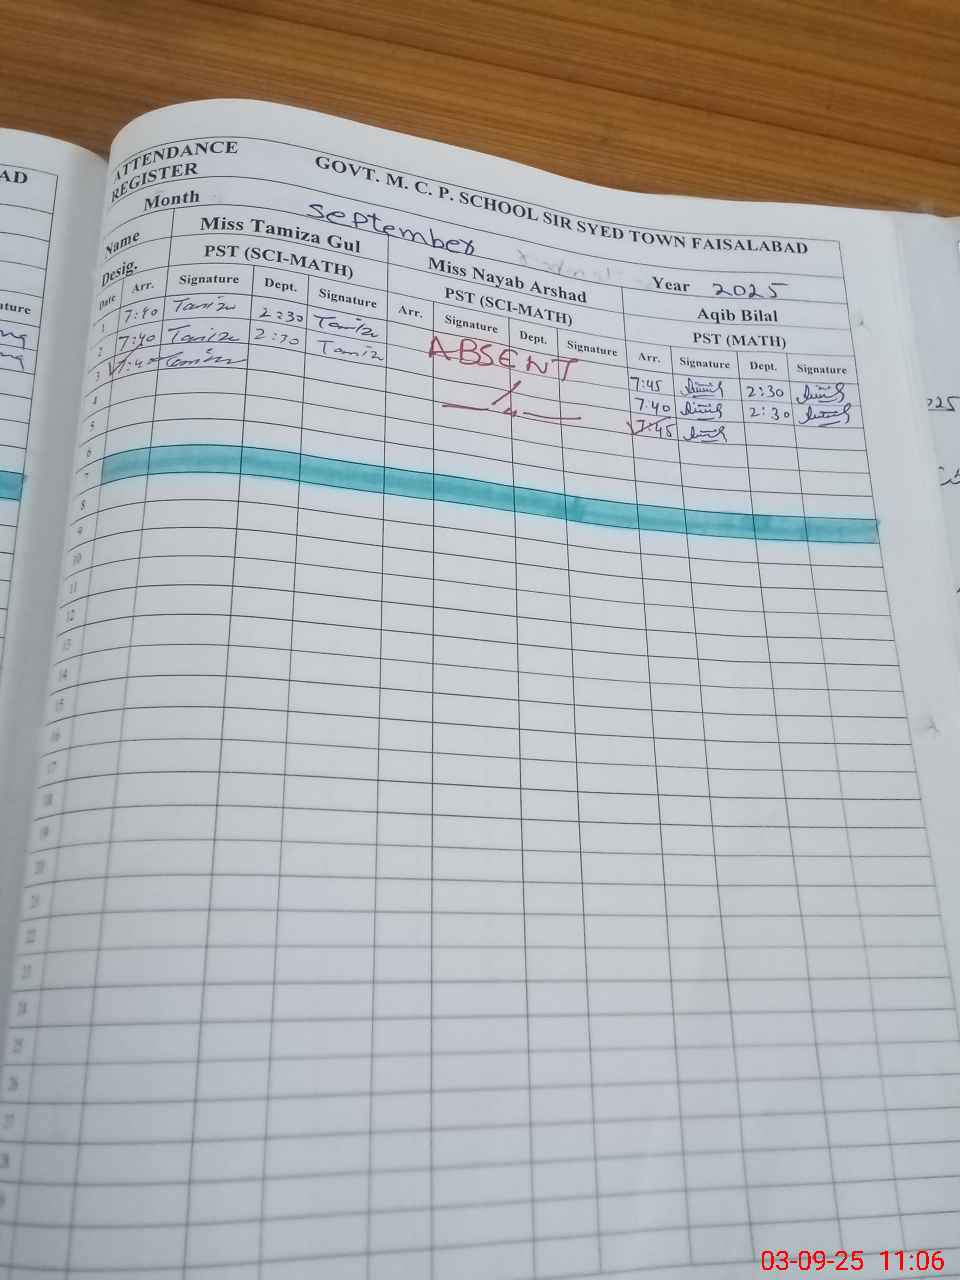 AD
ATTENDANCE REGISTER
GOVT. M. C. P. SCHOOL SIR SYED TOWN FAISALABAD
Month September Year 2025
Name Miss Tamiza Gul Miss Nayab Arshad Aqib Bilal
Desig. PST (SCI-MATH) PST (SCI-MATH) PST (MATH)
Date Arr. Signature Dept. Signature Arr. Signature Dept. Signature Arr. Signature Dept. Signature
1 7:40 Tamiza 2:30 Tamiza ABSENT 7:45 2:30
2 7:40 Tamiza 2:30 Tamiza 7:40 2:30
3 7:45 7:45
4
5
6
7
8
9
10
11
12
13
14
15
16
17
18
19
20
21
22
23
24
25
26
27
28
03-09-25 11:06